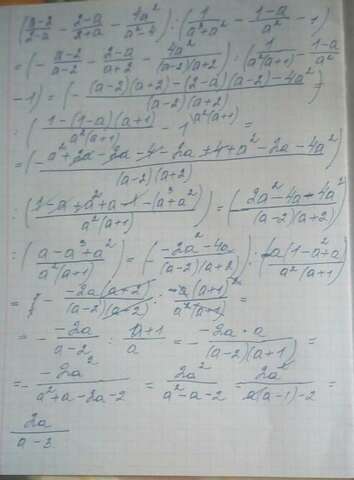 (a-2/2-a - 2-a/2+a - 4a²/a²-4) : (1/a³+a² - 1-a/a² - 1)
= (- a-2/a-2 - 2-a/a+2 - 4a²/(a-2)(a+2)) : (1/a²(a+1) - 1-a/a²
-1) = (- (a-2)(a+2)-(2-a)(a-2)-4a²/(a-2)(a+2))
: (1-(1-a)(a+1)/a²(a+1) - 1 \a²(a+1) =
= (- a²+2a-2a-4-2a+4+a²-2a-4a²/(a-2)(a+2))
: (1-a+a²+a-1-(a³+a²)/a²(a+1)) = (2a²-4a-4a²/(a-2)(a+2))
: (a-a³+a²/a²(a+1)) = (- -2a²-4a/(a-2)(a+2)) : a(1-a²+a)/a²(a+1)
= - -2a(a+2)/(a-2)(a+2) : a(a+1)²/a²(a+1) =
= - -2a/a-2 : a+1/a = - -2a·a/(a-2)(a+1) =
= - -2a²/a²+a-2a-2 = 2a²/a²-a-2 = 2a²/a(a-1)-2 =
2a/a-3